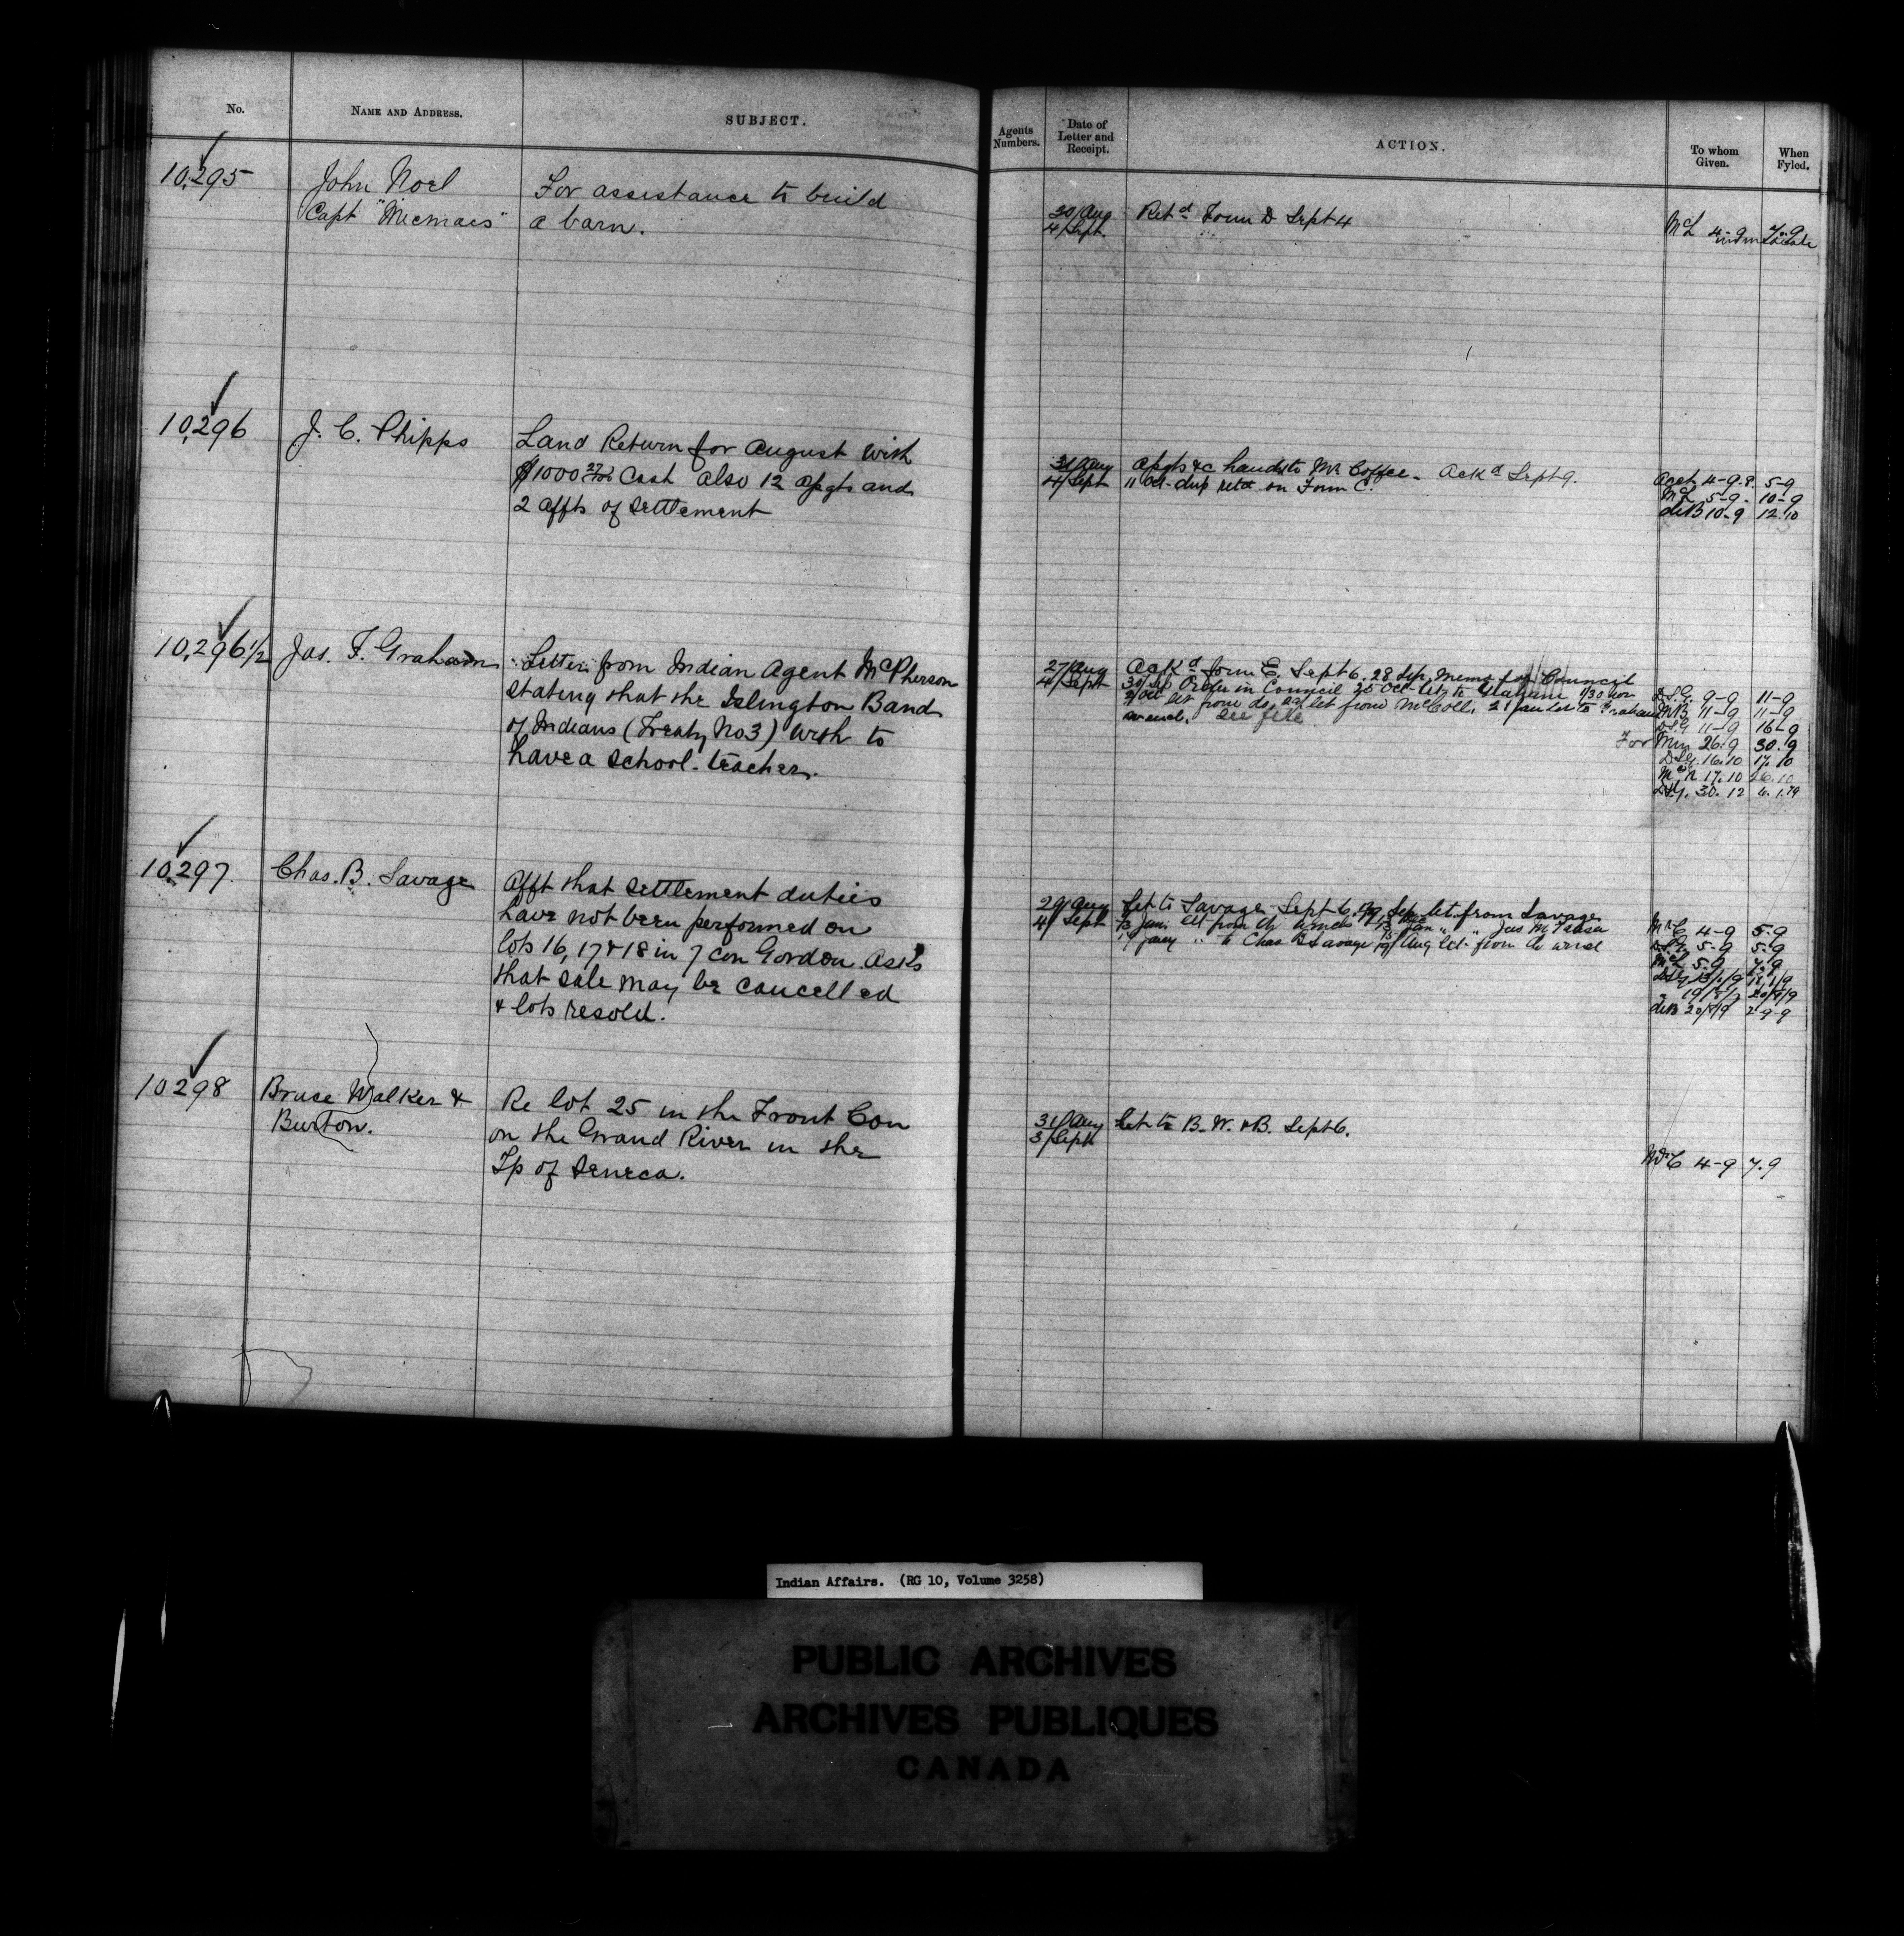 No.
NAME AND ADDRESS.
SUBJECT.
Agents Numbers.
Date of Letter and Receipt.
ACTION.
To whom Given.
When Fyled.
10,295
John Noel
Capt "Micmacs"
For assistance to build
a barn.
30/Aug
4/Sept.
Retd Form D Sept 4
McL 4-9
7-9
10,296
J. C. Phipps
Land Return for August with
$1000 27/100 Cash also 12 Apgts and
2 Affts of Settlement
31/Aug
4/Sept
Apgts &c handed to Mr Coffee. Ackd Sept 9.
11 Oct- dup retd on Form C.
Acct 4-9. 5-9
McL 5-9. 10-9
deB 10-9 12.10
10,296 1/2
Jas. F. Graham
Letter from Indian Agent McPherson
stating that the Islington Band
of Indians (Treaty No 3) wish to
have a School-teacher.
27/Aug
4/Sept
Ackd form E. Sept 6. 28 Sep. Memo for Council
30/Sep Order in Council 25 Oct- let. to Graham 1/30 Nov
2/Dec let from do. let from McColl.
See file
D.S.G. 9-9 11-9
11-9 11-9
D.S.G 11-9 16-9
For Min 26.9 30.9
D.S.G. 16.10 17.10
McN 17.10 26.10
D.S.G. 30.12 4.1.79
10,297.
Chas. B. Savage
Afft that Settlement duties
have not been performed on
lots 16, 17 & 18 in 7 Con Gordon. Asks
that sale may be cancelled
& lots resold.
29/Aug
4/Sept
Let to Savage Sept 6. Sep. let. from Savage
to Chas B Savage 19/Aug let- from
McC 4-9 5.9
5-9 5.9
McL 5.9 7.9
deB 20/8/9 2-9-9
10298
Bruce Walker &
Burton.
Re lot 25 in the Front Con
on the Grand River in the
Tp of Seneca.
31/Aug
3/Sept
Let to B. W. & B. Sept 6.
McC 4-9 7.9
Indian Affairs. (RG 10, Volume 3258)
PUBLIC ARCHIVES
ARCHIVES PUBLIQUES
CANADA